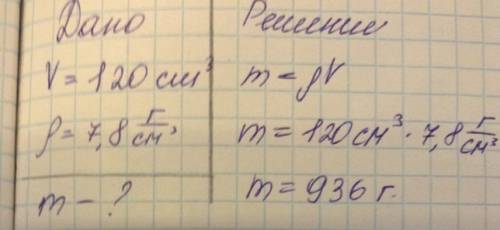 Дано
V = 120 см³
ρ = 7,8 г/см³
m - ?
Решение
m = ρV
m = 120 см³ · 7,8 г/см³
m = 936 г.